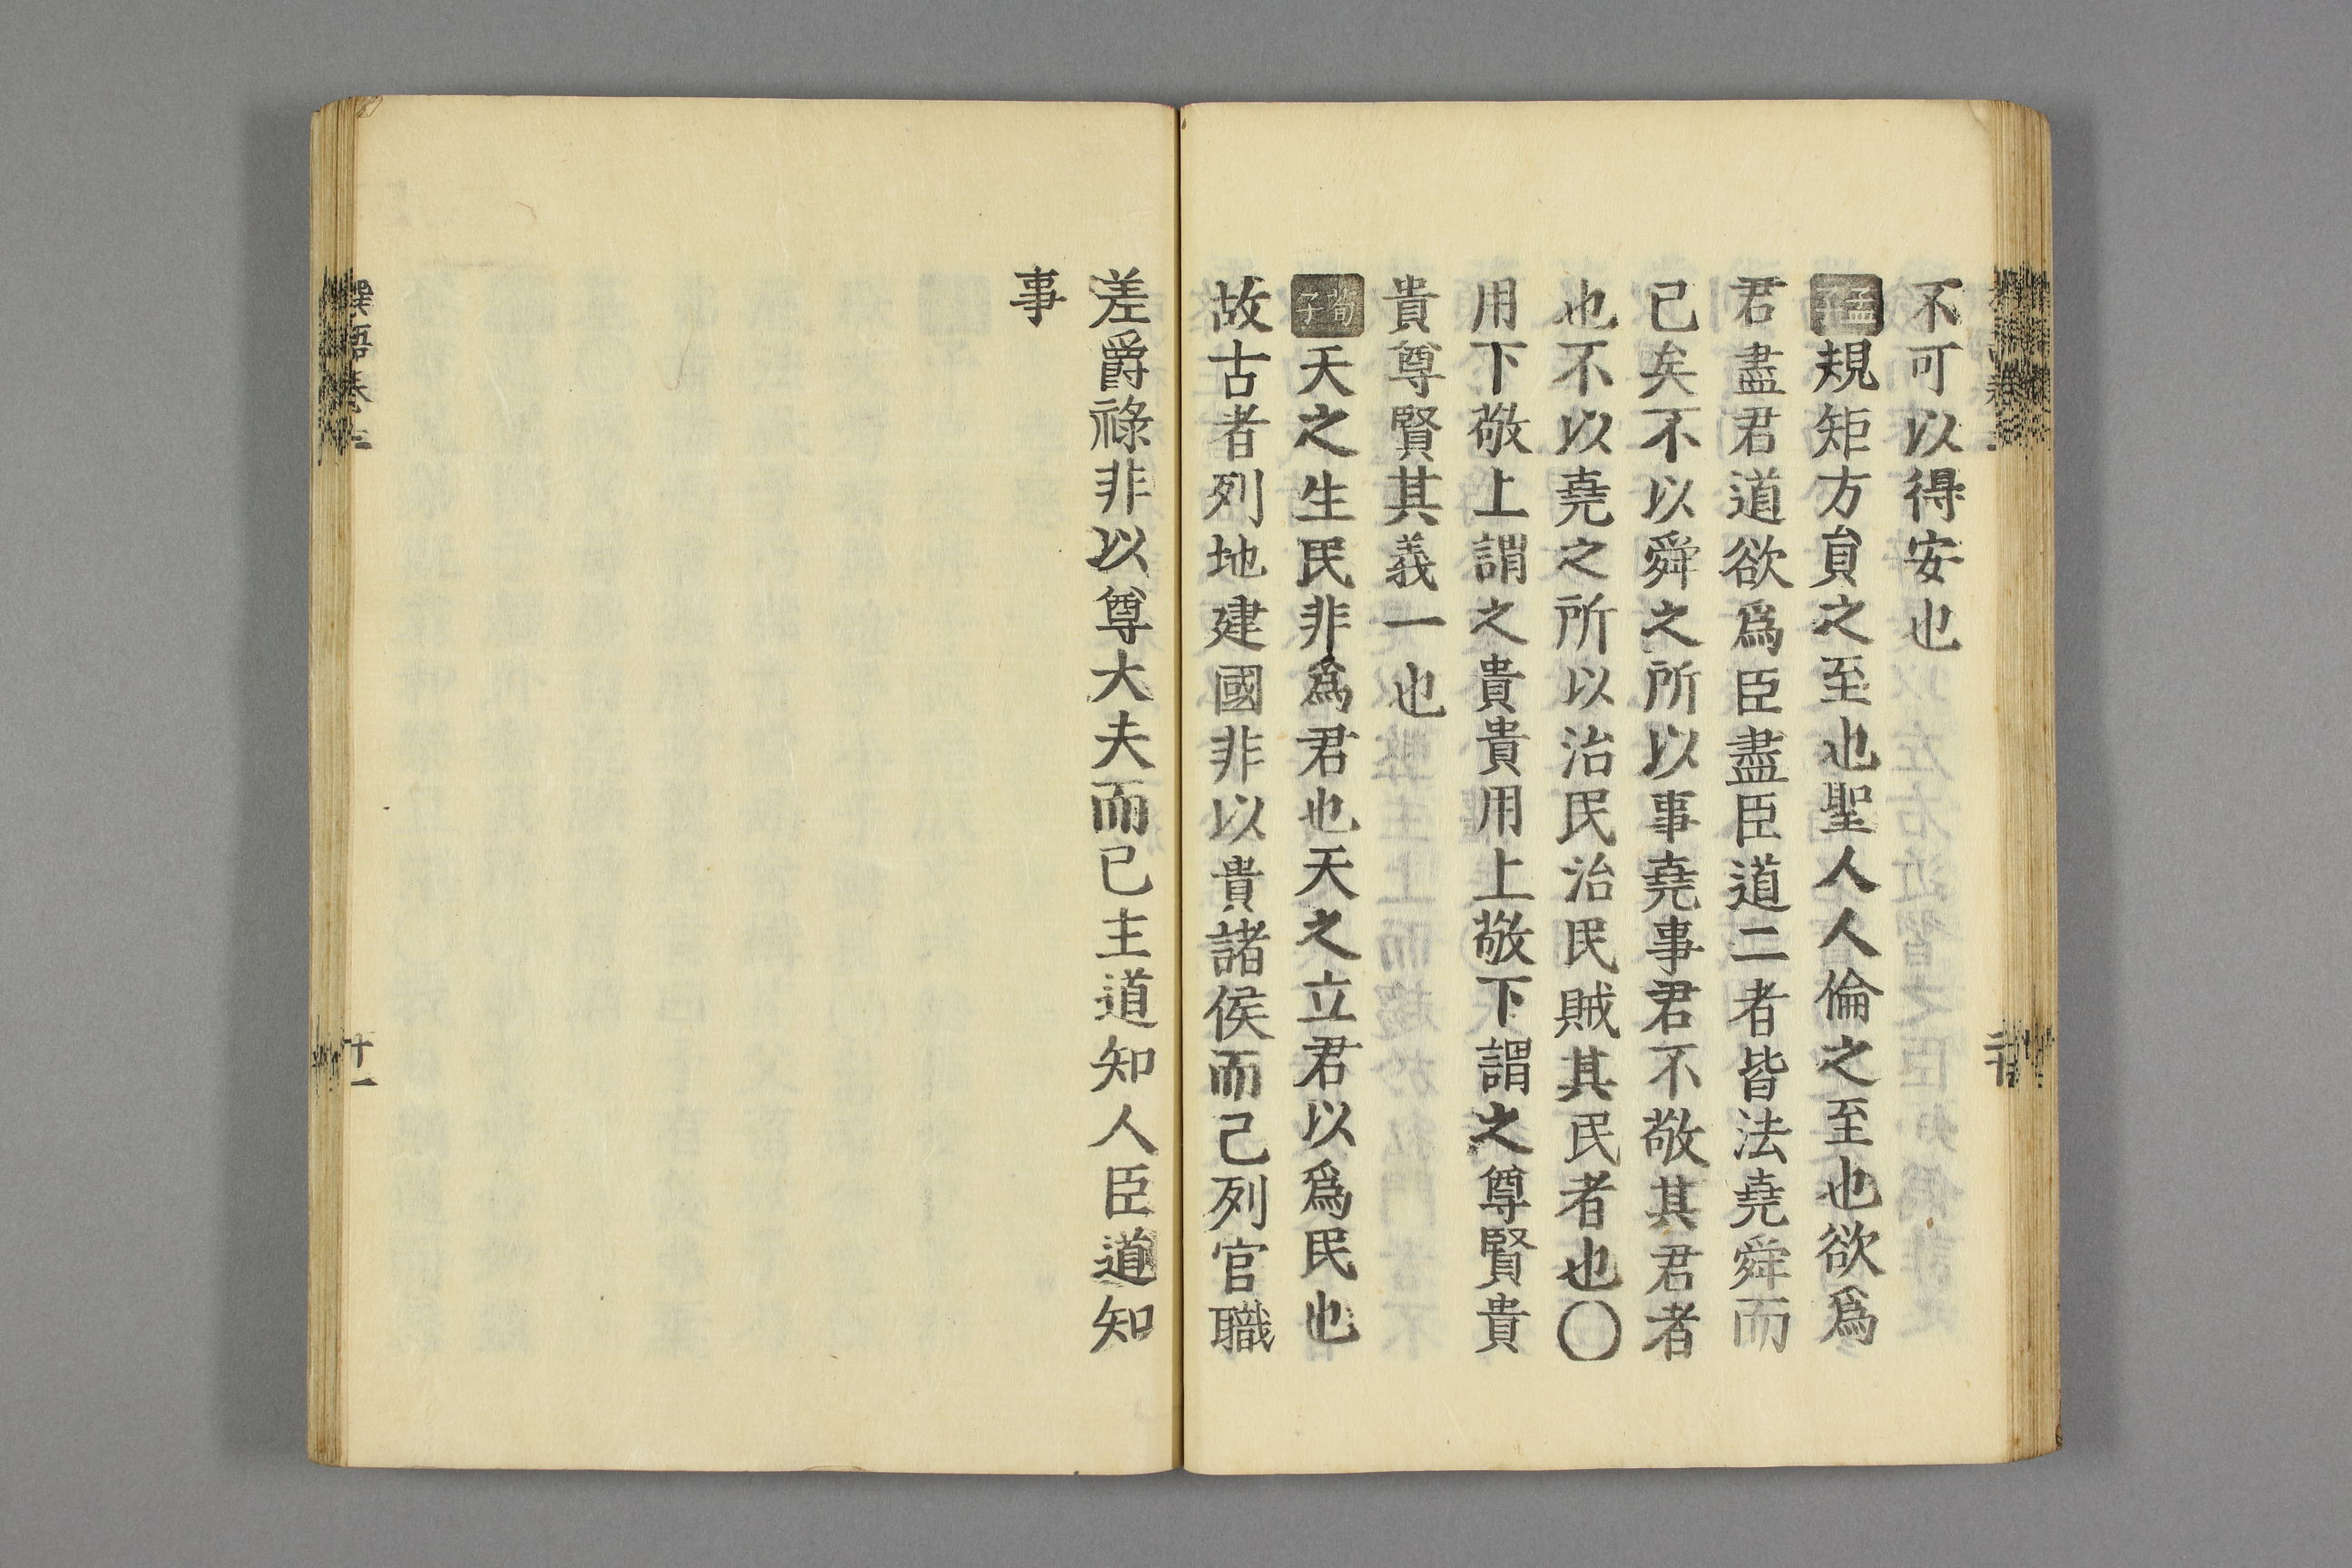 不可以得安也
孟子規矩方負之至也聖人人倫之至也欲爲
君盡君道欲爲臣盡臣道二者皆法堯舜而
己矣不以舜之所以事堯事君不敬其君者
也不以堯之所以治民治民賊其民者也〇
用下敬上謂之貴貴用上敬下謂之尊賢貴
貴尊賢其義一也
荀子天之生民非爲君也天之立君以爲民也
故古者列地建國非以貴諸侯而己列官職
差爵祿非以尊大夫而己主道知人臣道知
事
撰語卷
十一